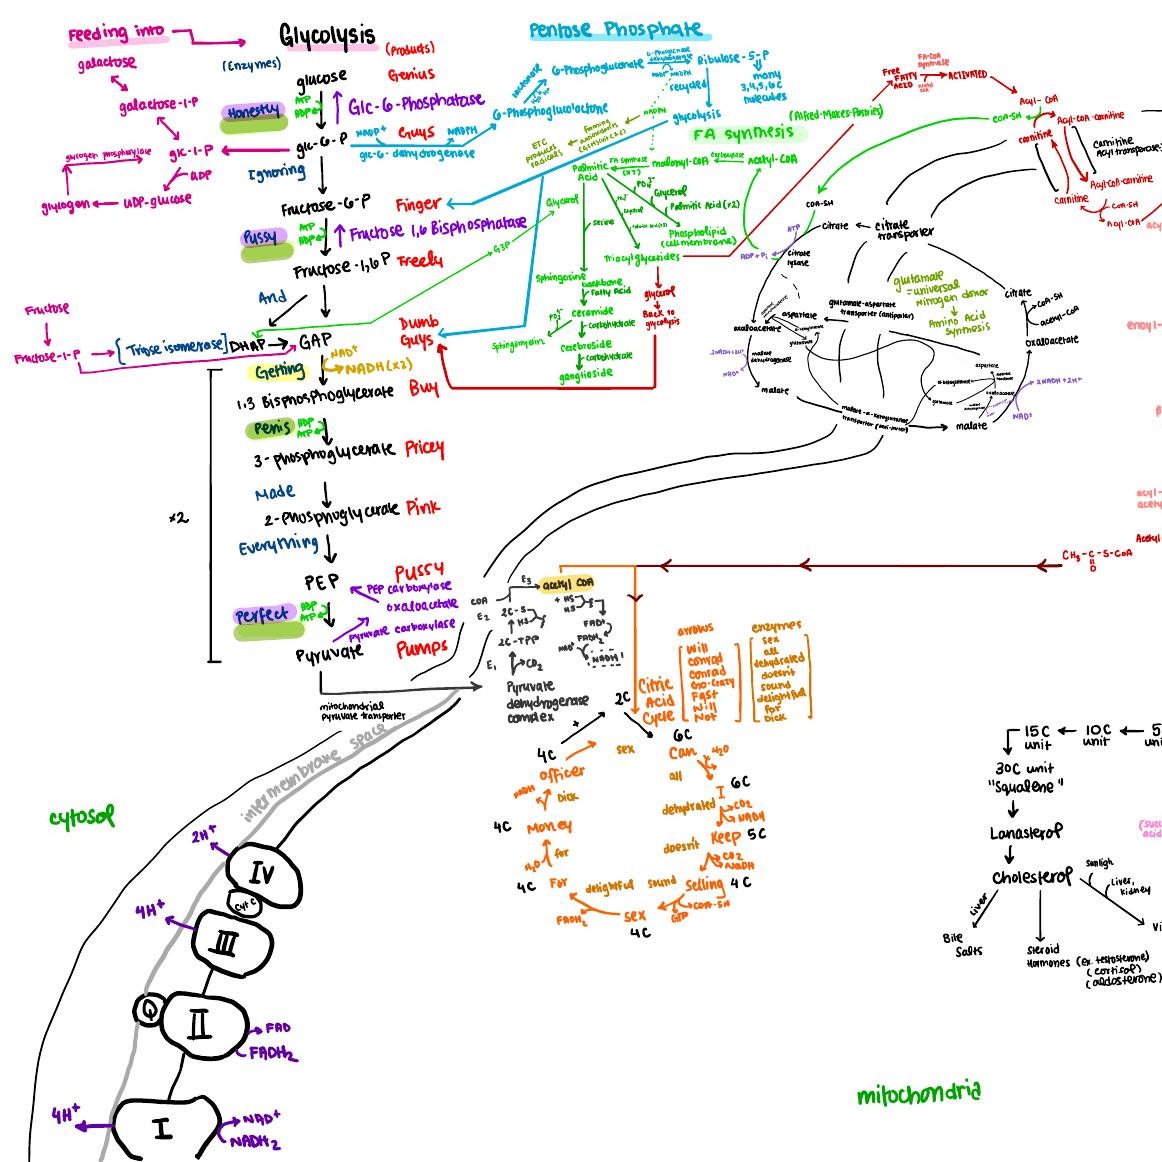 Feeding into
galactose
galactose-1-P
glycogen phosphorylase
glc-1-P
UDP
glycogen
UDP-glucose
Fructose
Fructose-1-P
Glycolysis
(Products)
(Enzymes)
glucose
Genius
Honestly
ATP
ADP
Glc-6-Phosphatase
glc-6-P
Guys
NADP+
NADPH
glc-6-dehydrogenase
Ignoring
Fructose-6-P
Finger
Pussy
ATP
ADP
Fructose 1,6 Bisphosphatase
Fructose-1,6 P
Freely
And
Dumb
Guys
[Triose isomerase]
DHAP
GAP
Getting
NAD+
NADH (x2)
1,3 Bisphosphoglycerate
Buy
Penis
ADP
ATP
3-phosphoglycerate
Pricey
Made
2-Phosphoglycerate
Pink
Everything
x2
PEP
Pussy
PEP carboxylase
oxaloacetate
Pyruvate carboxylase
Perfect
ADP
ATP
Pyruvate
Pumps
mitochondrial
pyruvate transporter
Pentose Phosphate
lactonase
6-Phosphogluconate
6-Phosphoglucolactone
Ribulose-5-P
many
3,4,5,6C
molecules
recycled
glycolysis
NADPH
ETC
produces
radicals
FA synthesis
Palmitic
Acid
FA synthase
(x7)
malonyl-COA
acetyl-COA
Glycerol
G3P
serine
Glycerol
Palmitic Acid (x2)
Phospholipid
(cell membrane)
Triacylglycerides
Sphingosine
backbone
Fatty Acid
ceramide
Sphingomyelin
carbohydrate
cerebroside
carbohydrate
ganglioside
glycerol
Back to
glycolysis
(Alfred-Makes-Pastries)
Free
FATTY
ACID
FA-CoA
synthase
ACTIVATED
Acyl-COA
COA-SH
carnitine
Acyl-coA-carnitine
carnitine
Acyl transperase
Acyl-COA-carnitine
carnitine
COA-SH
Acyl-COA
COA-SH
ATP
ADP + Pi
citrate
lyase
citrate
citrate
transporter
glutamate
=universal
nitrogen donor
Amino Acid
synthesis
citrate
COA-SH
acetyl-COA
oxaloacetate
aspartate
glutamate-aspartate
transporter (antiporter)
oxaloacetate
malate
dehydrogenase
NAD+
malate
aspartate
malate-α-ketoglutarate
transporter (anti-porter)
malate
2 NADH + 2H+
NAD+
enoyl-
acyl-
acety
Acetyl
CH3-C-S-COA
O
COA
E3
acetyl COA
E2
2C-S
HS
+ HS
HS
FAD
FADH2
2C-TPP
NAD+
NADH
E1
CO2
Pyruvate
dehydrogenase
complex
Citric
Acid
Cycle
arrows
Will
conrad
conrad
Go-crazy
Fast
Will
Not
enzymes
sex
all
dehydrated
doesn't
sound
delightful
for
Dick
2C
6C
Can
H2O
sex
all
I
6C
dehydrated
CO2
NADH
Keep
5C
doesn't
CO2
NADH
Selling
4C
sound
GTP
COA-SH
sex
4C
delightful
FADH2
For
4C
for
H2O
Money
4C
Dick
NADH
officer
4C
intermembrane space
cytosol
2H+
IV
Cyt C
4H+
III
Q
II
FAD
FADH2
4H+
I
NAD+
NADH2
15C
unit
10C
unit
30C unit
"Squalene"
Lanasterol
Cholesterol
Liver
Bile
Salts
Steroid
Hormones
(ex. testosterone)
(cortisol)
(aldosterone)
Sunligh
Liver,
kidney
Vi
(succ
acid
mitochondria